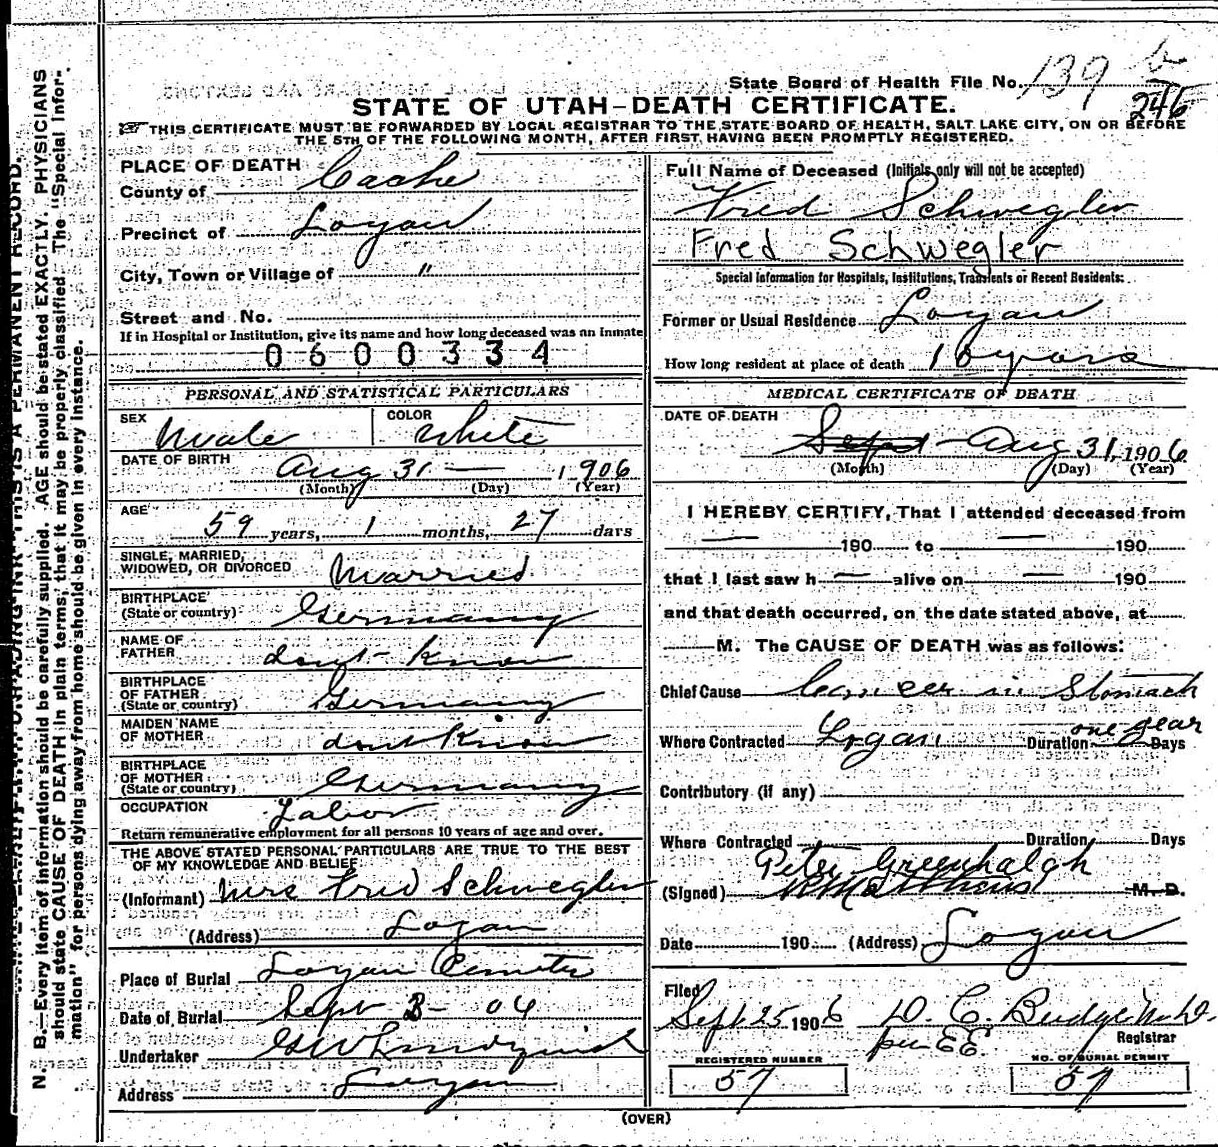 State Board of Health File No. 139 b
246
STATE OF UTAH—DEATH CERTIFICATE.
THIS CERTIFICATE MUST BE FORWARDED BY LOCAL REGISTRAR TO THE STATE BOARD OF HEALTH, SALT LAKE CITY, ON OR BEFORE
THE 5TH OF THE FOLLOWING MONTH, AFTER FIRST HAVING BEEN PROMPTLY REGISTERED.
PLACE OF DEATH
County of Cache
Precinct of Logan
City, Town or Village of "
Street and No.
If in Hospital or Institution, give its name and how long deceased was an inmate
0600334
PERSONAL AND STATISTICAL PARTICULARS
SEX Male COLOR White
DATE OF BIRTH Aug 31 — 1906
(Month) (Day) (Year)
AGE 59 years, 1 months, 27 days
SINGLE, MARRIED,
WIDOWED, OR DIVORCED Married
BIRTHPLACE
(State or country) Germany
NAME OF
FATHER dont- Know
BIRTHPLACE
OF FATHER
(State or country) Germany
MAIDEN NAME
OF MOTHER dont Know
BIRTHPLACE
OF MOTHER
(State or country) Germany
OCCUPATION Labor
Return remunerative employment for all persons 10 years of age and over.
THE ABOVE STATED PERSONAL PARTICULARS ARE TRUE TO THE BEST
OF MY KNOWLEDGE AND BELIEF
(Informant) Mrs Fred Schwegler
(Address) Logan
Place of Burial Logan Cemeter
Date of Burial Sept 3- 06
Undertaker GW Lindquist
Address Logan
Full Name of Deceased (Initials only will not be accepted)
Fred Schwegler
Fred Schwegler
Special Information for Hospitals, Institutions, Transients or Recent Residents:
Former or Usual Residence Logan
How long resident at place of death 16 years
MEDICAL CERTIFICATE OF DEATH
DATE OF DEATH
Sept - Aug 31, 1906
(Month) (Day) (Year)
I HEREBY CERTIFY, That I attended deceased from
— 190 to — 190
that I last saw h — alive on — 190
and that death occurred, on the date stated above, at
M. The CAUSE OF DEATH was as follows:
Chief Cause Cancer in Stomach
Where Contracted Logan Duration one year Days
Contributory (if any)
Where Contracted Duration Days
Peter Greenhalgh
(Signed) M. D.
Date 190 (Address) Logan
Filed
Sept 25 1906 D. C. Budge M.D.
per EE. Registrar
REGISTERED NUMBER NO. OF BURIAL PERMIT
57 57
(OVER)
N. B.—Every item of information should be carefully supplied. AGE should be stated EXACTLY. PHYSICIANS
should state CAUSE OF DEATH in plain terms, that it may be properly classified. The "Special Infor-
mation" for persons dying away from home should be given in every instance.
THIS IS A PERMANENT RECORD.